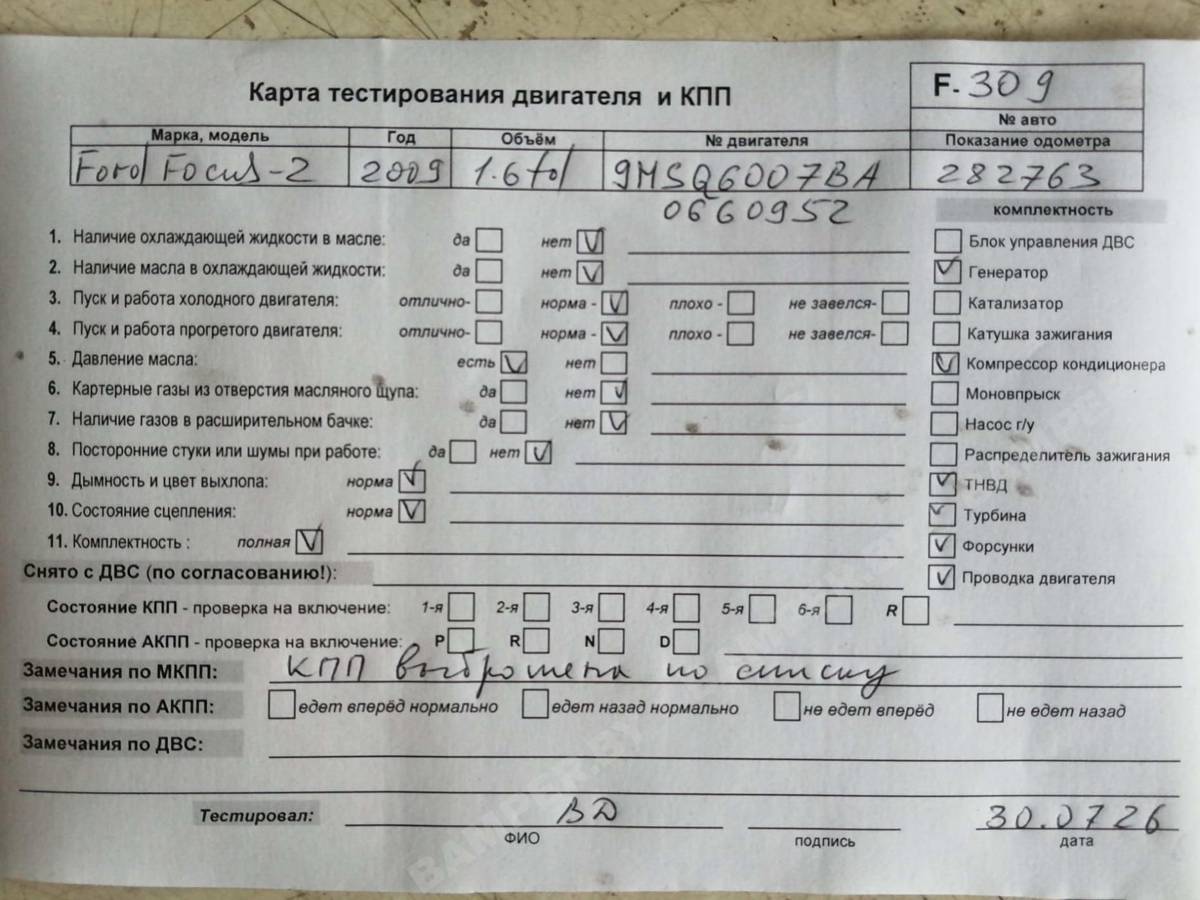 Карта тестирования двигателя и КПП
F- 309
№ авто
Марка, модель Год Объём № двигателя Показание одометра
Ford Focus-2 2009 1.6td 9HSQ6007BA 282763
0660952
комплектность
1. Наличие охлаждающей жидкости в масле: да нет Блок управления ДВС
2. Наличие масла в охлаждающей жидкости: да нет Генератор
3. Пуск и работа холодного двигателя: отлично- норма - плохо - не завелся- Катализатор
4. Пуск и работа прогретого двигателя: отлично- норма - плохо - не завелся- Катушка зажигания
5. Давление масла: есть нет Компрессор кондиционера
6. Картерные газы из отверстия масляного щупа: да нет Моновпрыск
7. Наличие газов в расширительном бачке: да нет Насос г/у
8. Посторонние стуки или шумы при работе: да нет Распределитель зажигания
9. Дымность и цвет выхлопа: норма ТНВД
10. Состояние сцепления: норма Турбина
11. Комплектность : полная Форсунки
Снято с ДВС (по согласованию!): Проводка двигателя
Состояние КПП - проверка на включение: 1-я 2-я 3-я 4-я 5-я 6-я R
Состояние АКПП - проверка на включение: P R N D
Замечания по МКПП: КПП выброшена по списку
Замечания по АКПП: едет вперёд нормально едет назад нормально не едет вперёд не едет назад
Замечания по ДВС:
Тестировал: ВД 30.07 26
ФИО подпись дата
BAMPER.BY